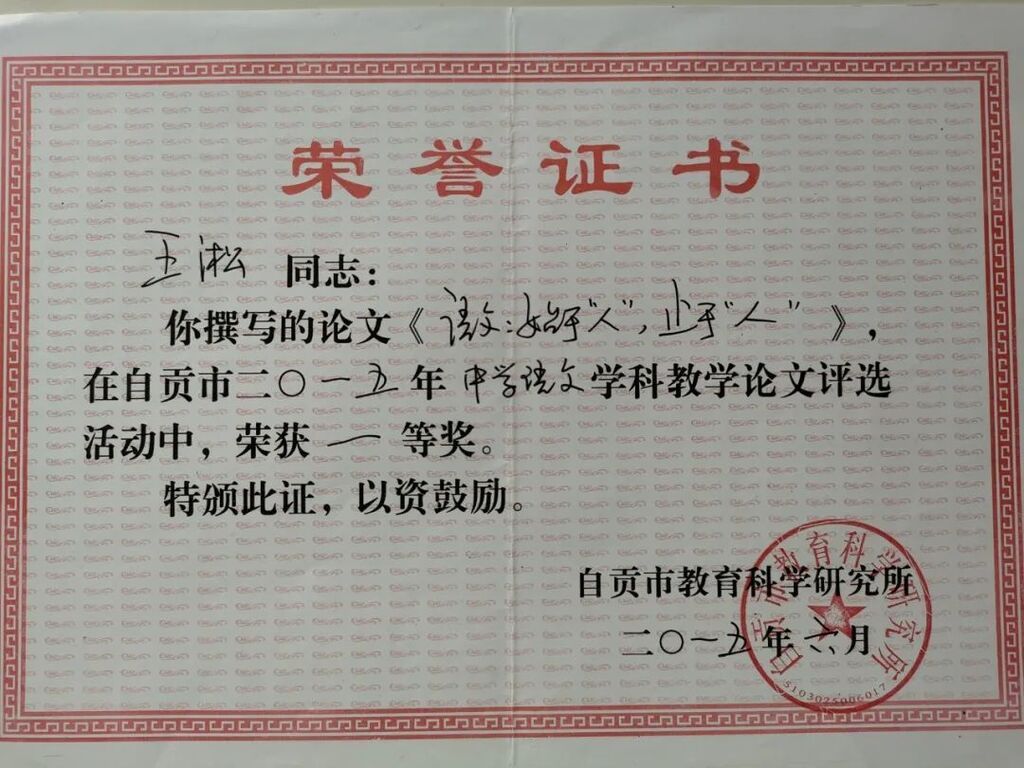 荣誉证书
王淞 同志：
你撰写的论文《语文：始于“人”，止于“人”》，
在自贡市二〇一五年中学语文学科教学论文评选
活动中，荣获一等奖。
特颁此证，以资鼓励。
自贡市教育科学研究所
二〇一五年六月
自贡市教育科学研究所
5103025006017